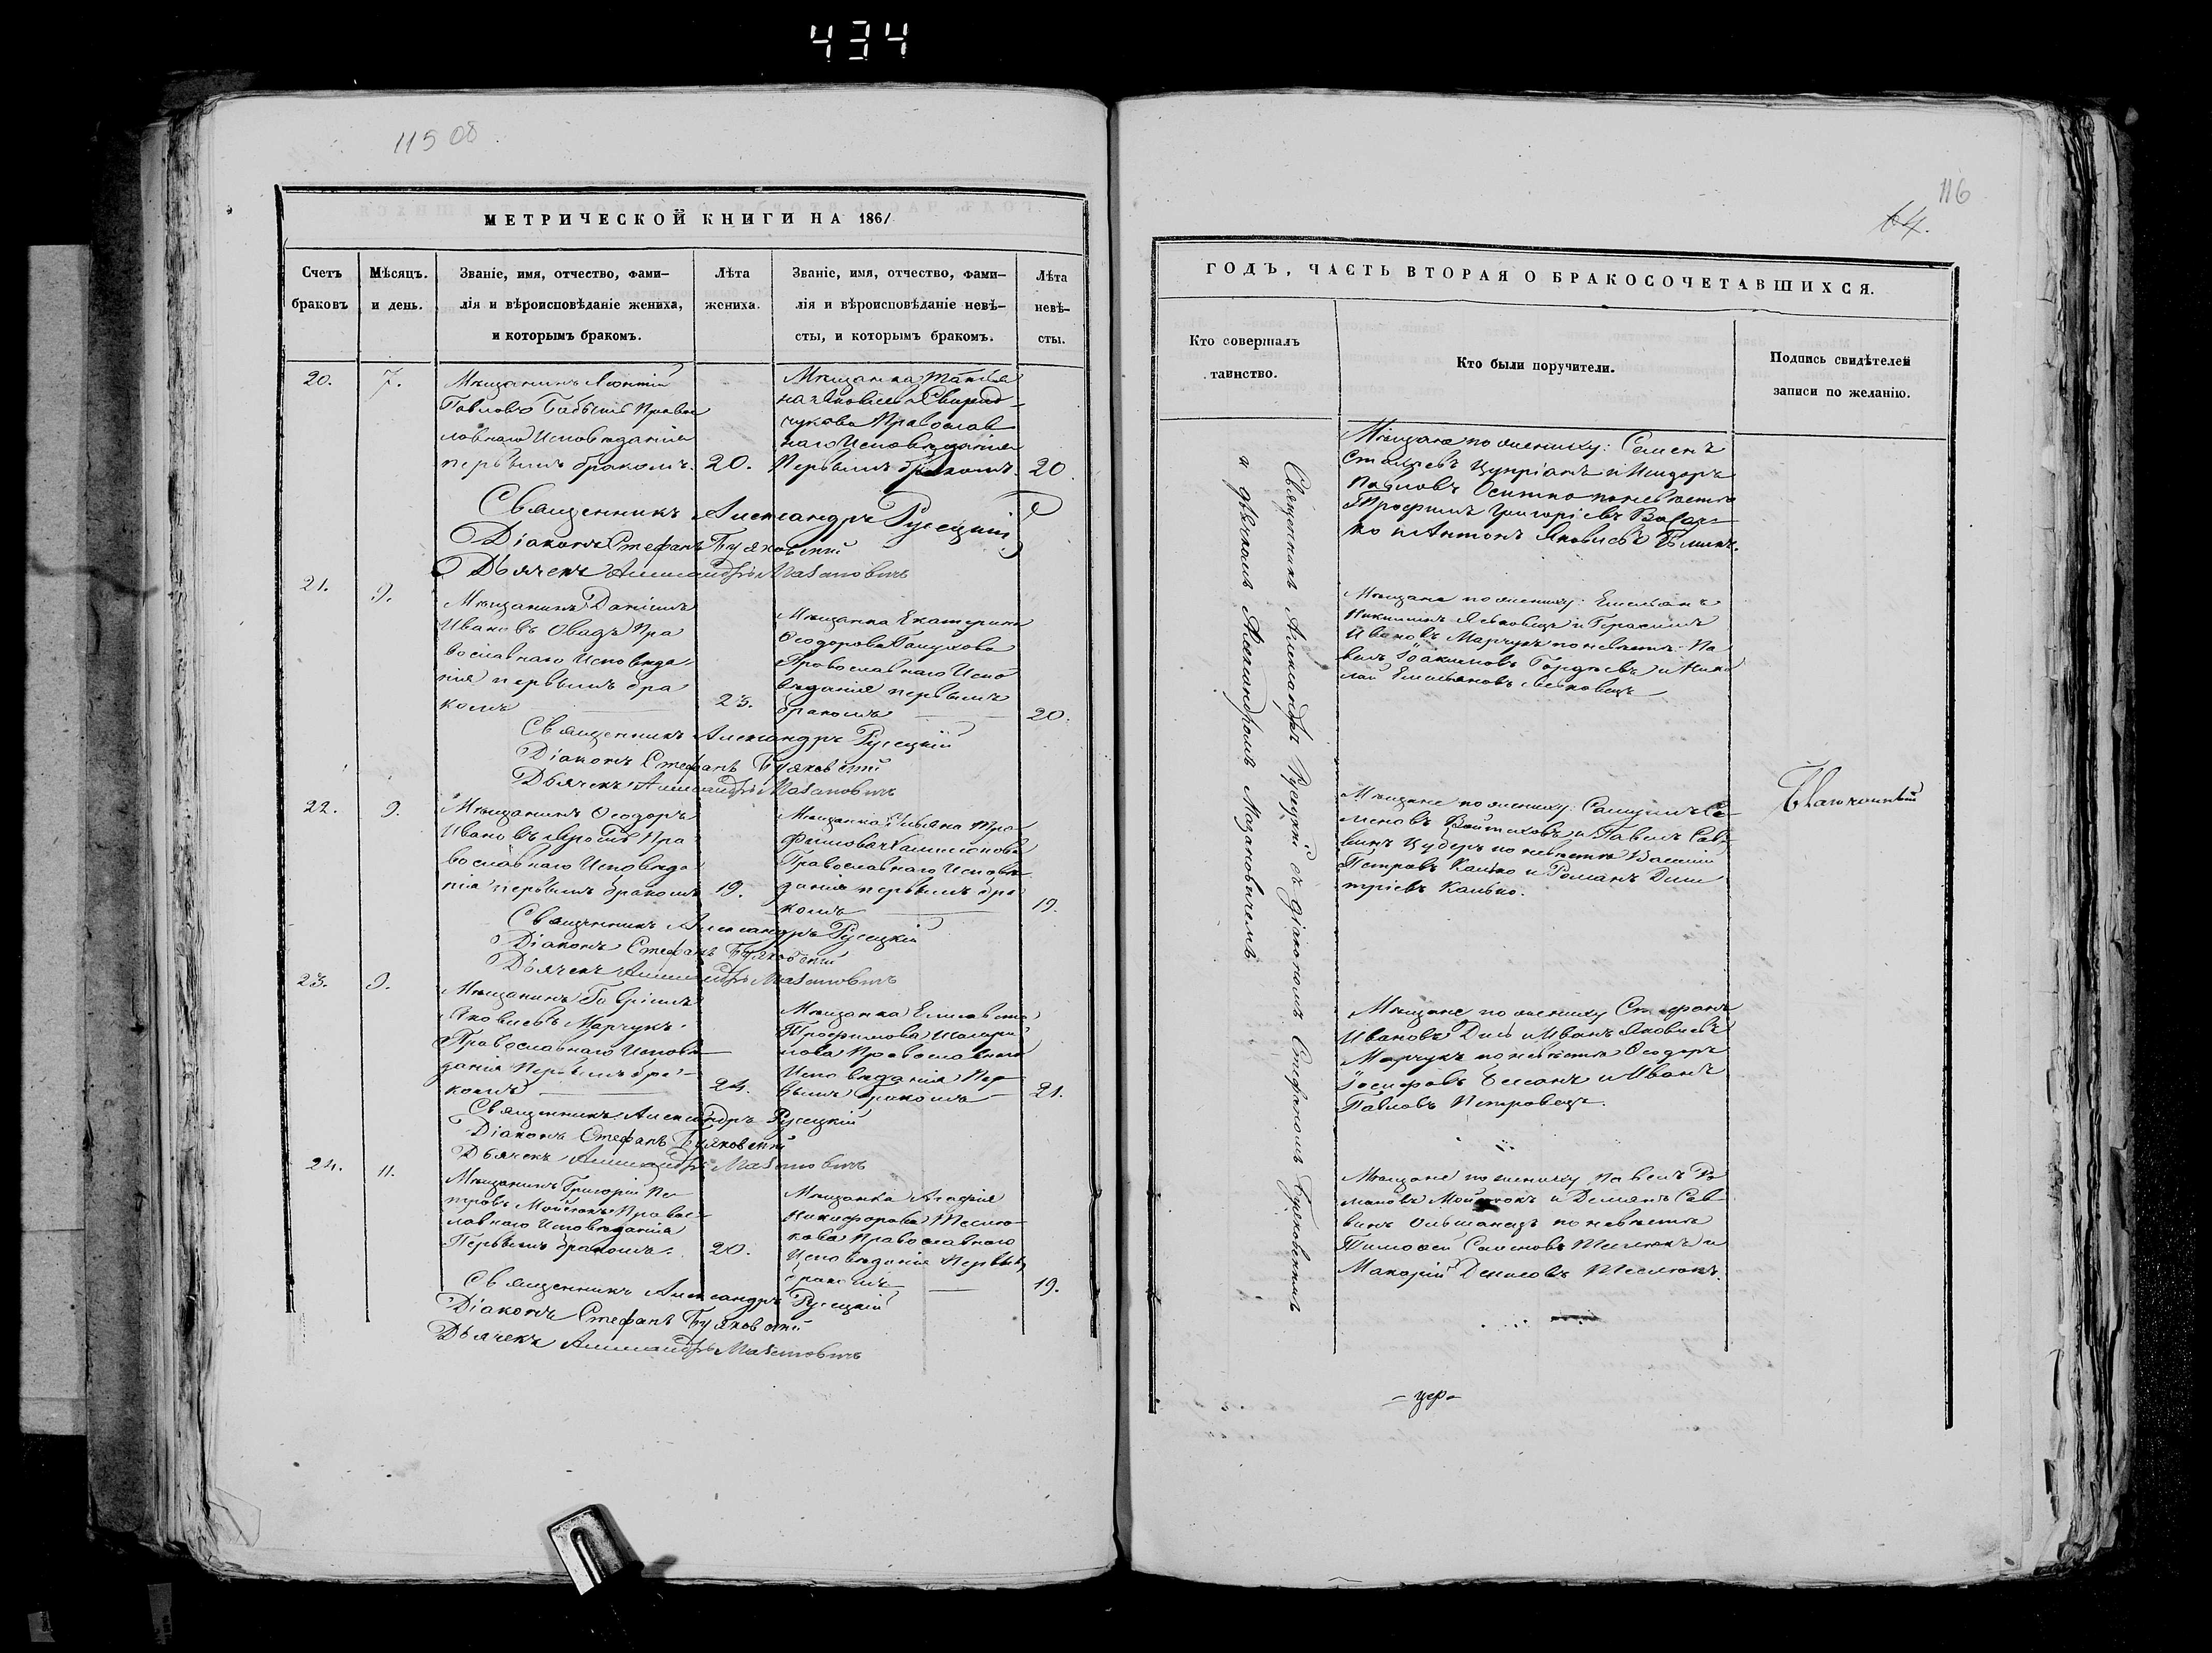 434
115 об
МЕТРИЧЕСКОЙ КНИГИ НА 1861
Счетъ браковъ
Мѣсяцъ. и день.
Званіе, имя, отчество, фами-
лія и вѣроисповѣданіе жениха,
и которымъ бракомъ.
Лѣта
жениха.
Званіе, имя, отчество, фами-
лія и вѣроисповѣданіе невѣ-
сты, и которымъ бракомъ.
Лѣта
невѣ-
сты.
20. 7.
Мѣщанинъ Леонтій
Павловъ Правос
лавнаго Исповѣданія
первымъ бракомъ. 20.
Мѣщанка
Свирид-
чукова Православ
наго Исповѣданія
Первымъ бракомъ. 20
Священникъ Александръ Русецкій
Діаконъ Стефанъ Буяковскій
Дьячекъ Александръ Мазановичъ
21. 9.
Мѣщанинъ Даніилъ
Ивановъ Овадъ Пра
вославнаго Исповѣда
нія первымъ бра
комъ 23.
Мѣщанка Екатерина
Ѳеодорова
Православнаго Испо
вѣданія первымъ
бракомъ 20.
Священникъ Александръ Русецкій
Діаконъ Стефанъ Буяковскій
Дьячекъ Александръ Мазановичъ
22. 9.
Мѣщанинъ Ѳеодоръ
Ивановъ Пра
вославнаго Исповѣда
нія первымъ бракомъ 19.
Мѣщанка Тро
фимова
Православнаго Исповѣ
данія первымъ бра
комъ 19.
Священникъ Александръ Русецкій
Діаконъ Стефанъ Буяковскій
Дьячекъ Александръ Мазановичъ
23. 9.
Мѣщанинъ Гавріилъ
Яковлевъ Марчукъ
Православнаго Исповѣ
данія Первымъ бра-
комъ 24.
Мѣщанка Елисавета
Трофимова
Православнаго
Исповѣданія Пер
вымъ бракомъ 21.
Священникъ Александръ Русецкій
Діаконъ Стефанъ Буяковскій
Дьячекъ Александръ Мазановичъ
24. 11.
Мѣщанинъ Григорій Пе
тровъ Мойсюкъ Правос
лавнаго Исповѣданія
Первымъ бракомъ. 20.
Мѣщанка Агафія
Никифорова Теслю-
кова Православнаго
Исповѣданія Первымъ
бракомъ 19.
Священникъ Александръ Русецкій
Діаконъ Стефанъ Буяковскій
Дьячекъ Александръ Мазановичъ
116
64.
ГОДЪ, ЧАСТЬ ВТОРАЯ О БРАКОСОЧЕТАВШИХСЯ.
Кто совершалъ
таинство.
Кто были поручители.
Подпись свидѣтелей
записи по желанію.
Священникъ Александръ Русецкій съ діакономъ Стефаномъ Буяковскимъ
и дьячкомъ Александромъ Мазановичемъ
Мѣщане по жениху: Семенъ
Купріанъ и Исидоръ
Павловъ по невѣстѣ
Трофимъ Григоріевъ
ко и Антонъ Яковлевъ
Мѣщане по жениху: Емельянъ
Никитинъ и Герасимъ
Ивановъ Марчукъ по невѣстѣ: Па
велъ Іоакимовъ Гордѣевъ и Нико
лай Емельяновъ
Мѣщане по жениху: Самуилъ Се
меновъ Войтиховъ и Павелъ Сав-
винъ по невѣстѣ Василій
Петровъ Калько и Романъ Дми
тріевъ Калько.
Мѣщане по жениху Стефанъ
Ивановъ Диль и Иванъ Яковлевъ
Марчукъ по невѣстѣ Ѳеодоръ
Іосифовъ и Иванъ
Павловъ Петровецъ.
Мѣщане по жениху Павелъ Ро
мановъ Мойсюкъ и Демянъ Сав
винъ Ольшанецъ по невѣстѣ
Тимоѳей Семеновъ Теслюкъ и
Макарій Денисовъ Теслюкъ.